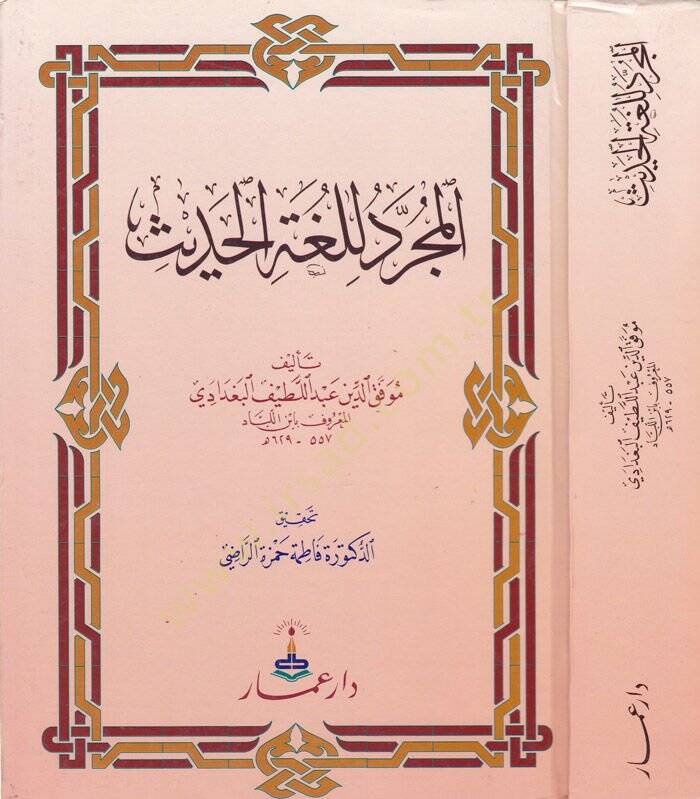 المجرَّد للغةِ الحديث
تأليف
موفق الدين عبد اللطيف البغدادي
المعروف بابن اللباد
٥٥٧ - ٦٢٩هـ
تحقيق
الدكتورة فاطمة حمزة الراضي
دار عمار
المجرَّد للغةِ الحديث
تأليف
موفق الدين عبد اللطيف البغدادي
المعروف بابن اللباد
٥٥٧ - ٦٢٩هـ
دار عمار